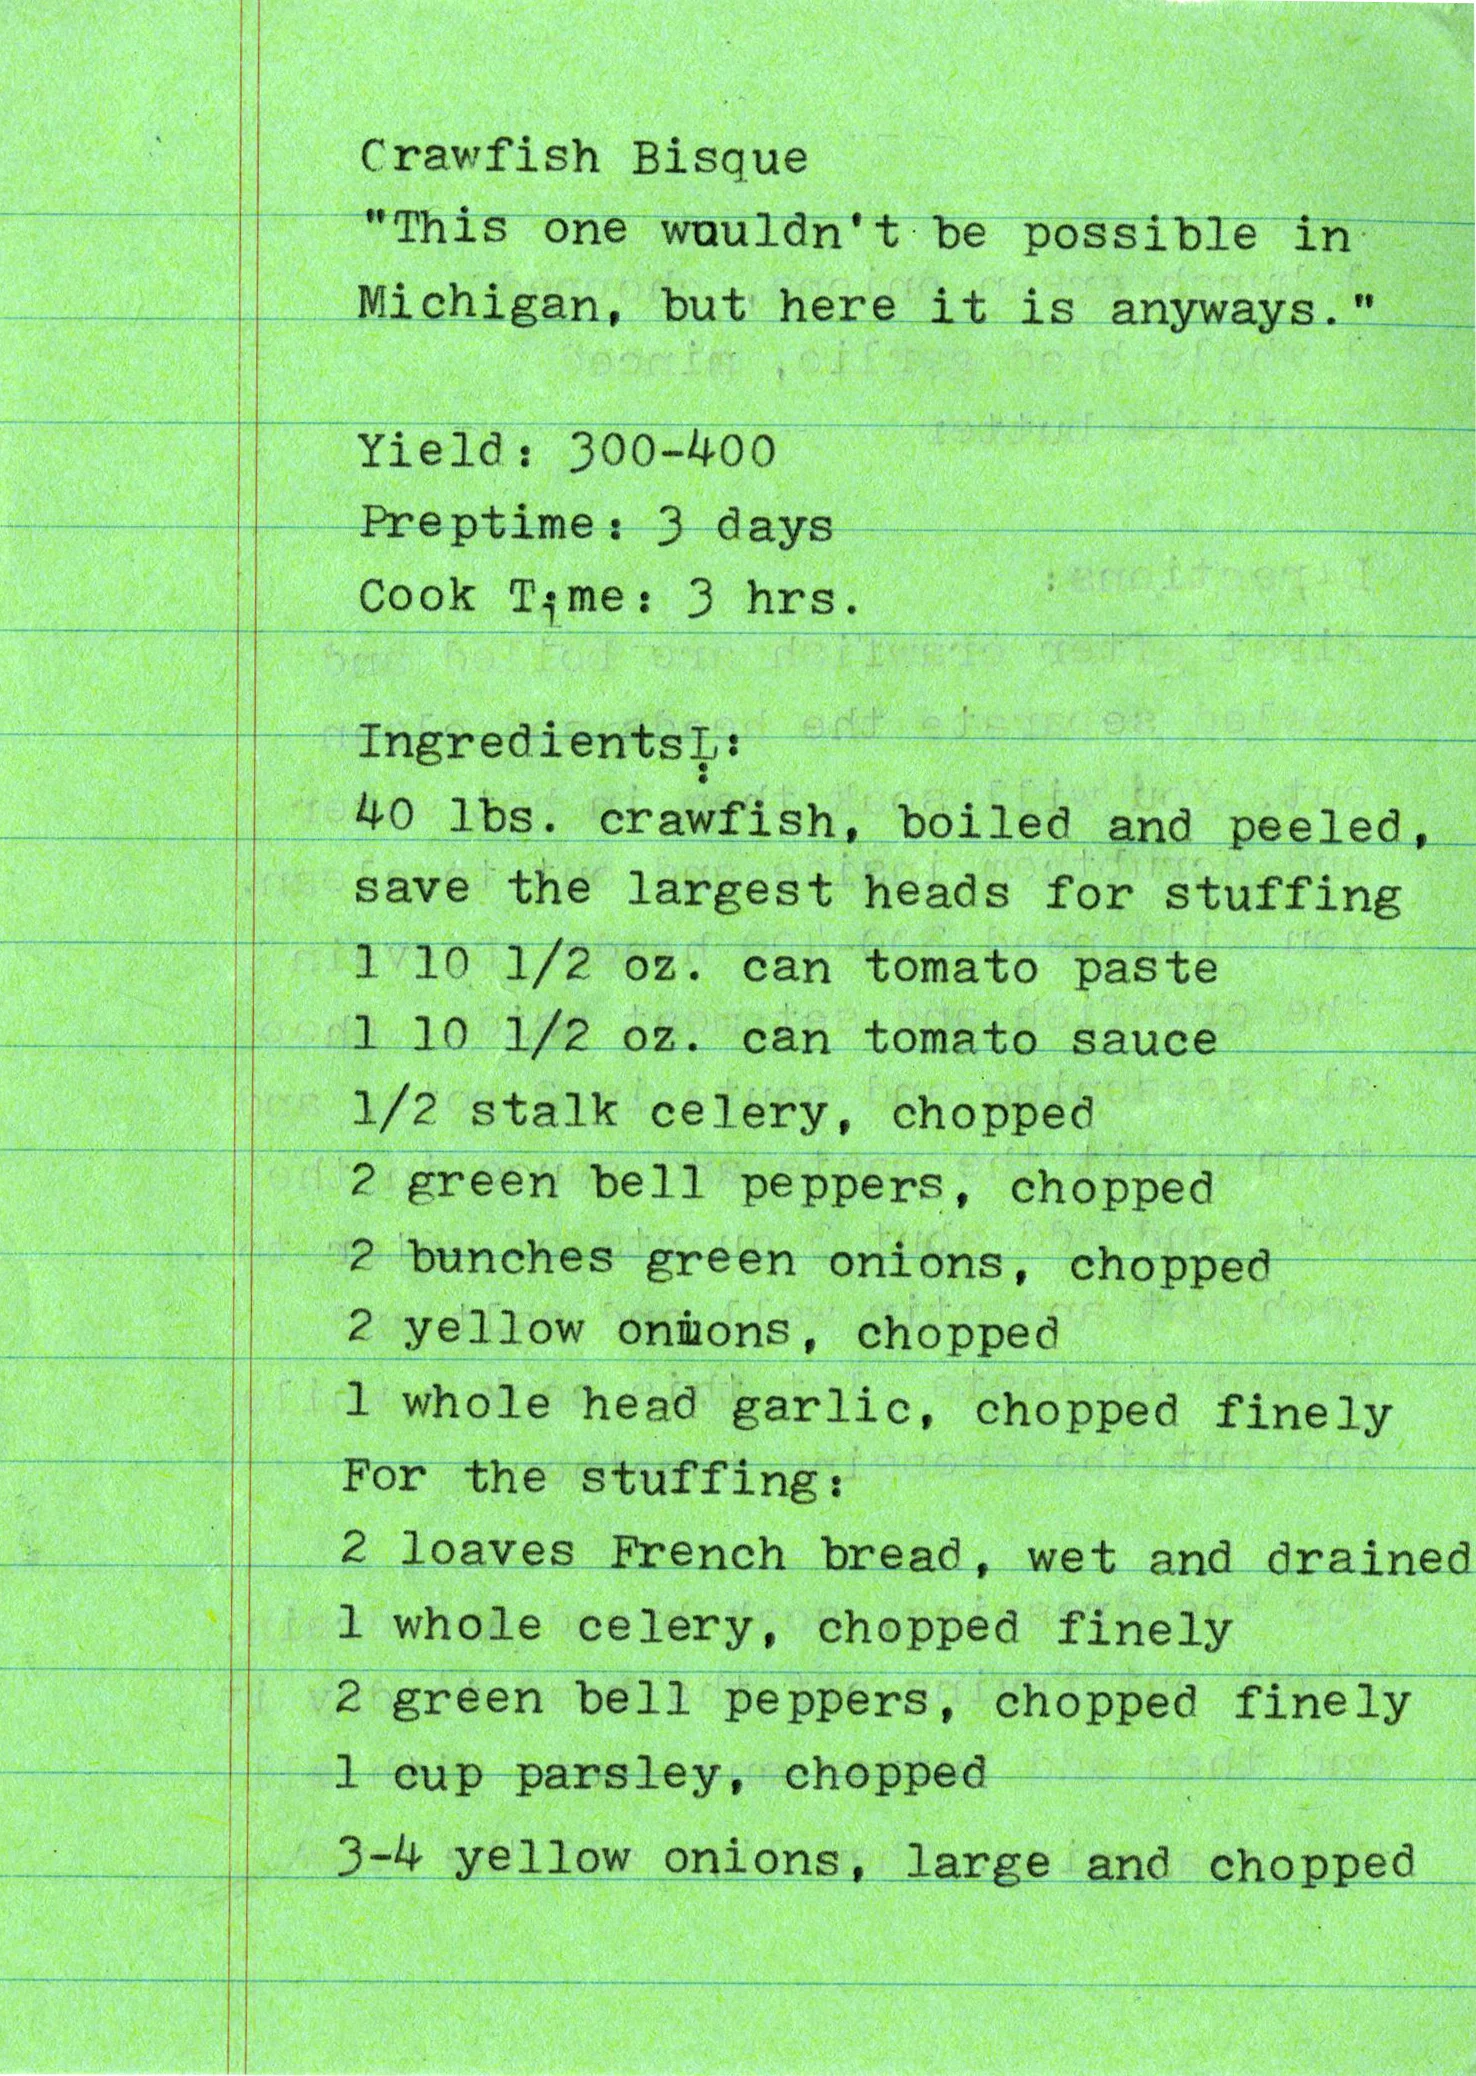 Crawfish Bisque
"This one wouldn't be possible in
Michigan, but here it is anyways."
Yield: 300-400
Preptime: 3 days
Cook Time: 3 hrs.
Ingredients:
40 lbs. crawfish, boiled and peeled,
save the largest heads for stuffing
1 10 1/2 oz. can tomato paste
1 10 1/2 oz. can tomato sauce
1/2 stalk celery, chopped
2 green bell peppers, chopped
2 bunches green onions, chopped
2 yellow onions, chopped
1 whole head garlic, chopped finely
For the stuffing:
2 loaves French bread, wet and drained
1 whole celery, chopped finely
2 green bell peppers, chopped finely
1 cup parsley, chopped
3-4 yellow onions, large and chopped